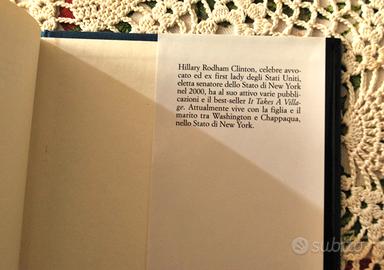 Hillary Rodham Clinton, celebre avvo-
cato ed ex first lady degli Stati Uniti,
eletta senatore dello Stato di New York
nel 2000, ha al suo attivo varie pubbli-
cazioni e il best-seller It Takes A Villa-
ge. Attualmente vive con la figlia e il
marito tra Washington e Chappaqua,
nello Stato di New York.
subito